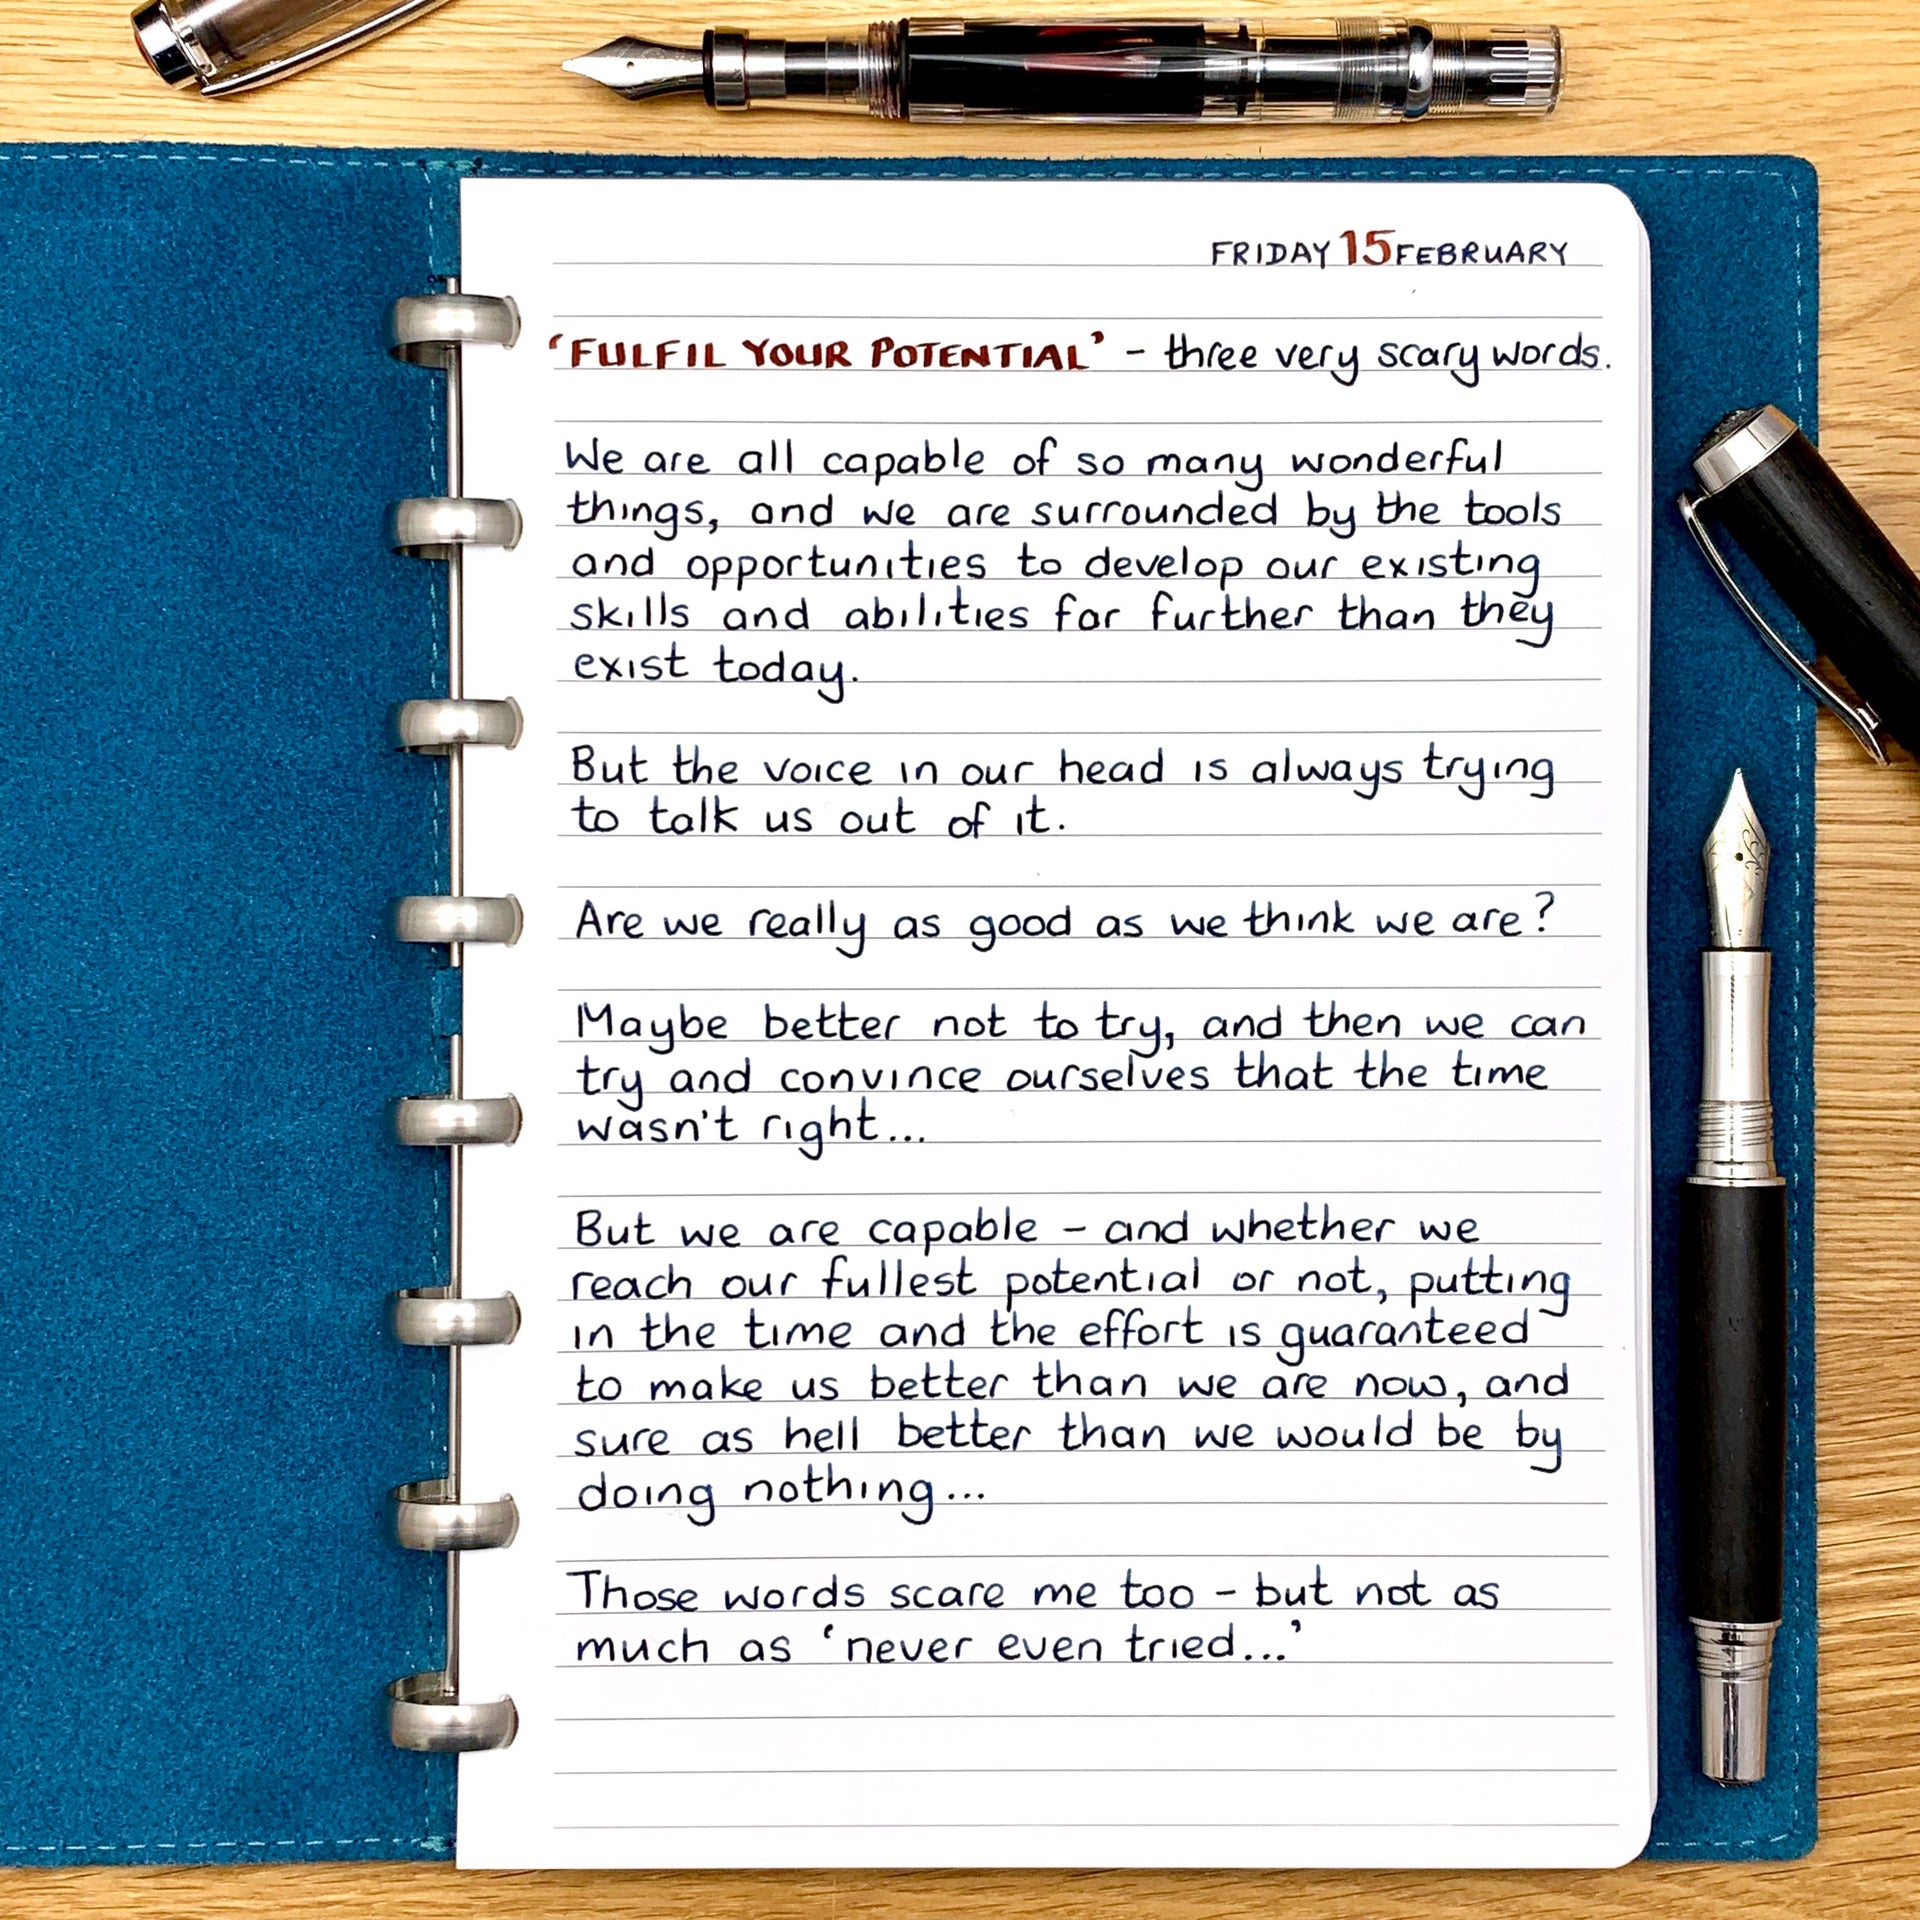 FRIDAY 15 FEBRUARY
‘FULFIL YOUR POTENTIAL’ - three very scary words.
We are all capable of so many wonderful
things, and we are surrounded by the tools
and opportunities to develop our existing
skills and abilities far further than they
exist today.
But the voice in our head is always trying
to talk us out of it.
Are we really as good as we think we are?
Maybe better not to try, and then we can
try and convince ourselves that the time
wasn't right...
But we are capable - and whether we
reach our fullest potential or not, putting
in the time and the effort is guaranteed
to make us better than we are now, and
sure as hell better than we would be by
doing nothing...
Those words scare me too - but not as
much as ‘never even tried...’